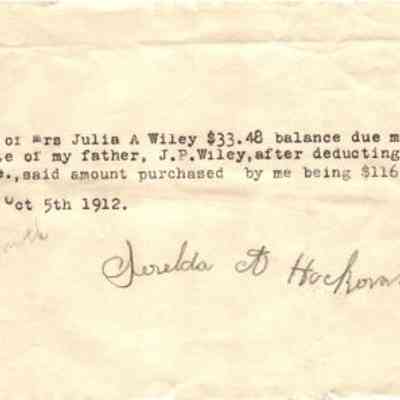 of Mrs Julia A Wiley $33.48 balance due m
e of my father, J.P.Wiley,after deducting
e.,said amount purchased by me being $116
Oct 5th 1912.
A